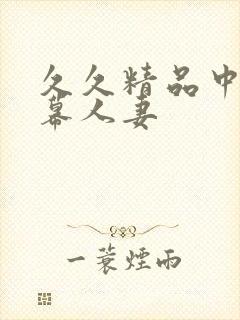 久久精品中
幕人妻
一蓑煙雨